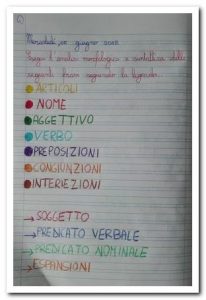 Mercoledì, giugno
Eseguo l'analisi morfologica e sintattica delle
seguenti frasi seguendo la legenda.
ARTICOLI
NOME
AGGETTIVO
VERBO
PREPOSIZIONI
CONGIUNZIONI
INTERIEZIONI
→ SOGGETTO
→ PREDICATO VERBALE
→ PREDICATO NOMINALE
→ ESPANSIONI